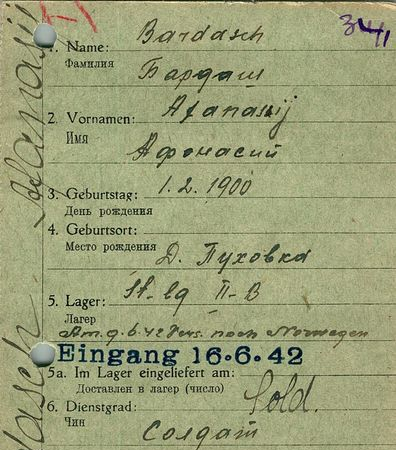 34/1
1. Name: Bardasch
Фамилия Бардаш
2. Vornamen: Afanassij
Имя Афонасий
3. Geburtstag: 1.2.1900
День рождения
4. Geburtsort:
Место рождения Д. Пуховка
5. Lager: St-lg II-B
Лагер
Am 9.6.42 Vers. nach Norwegen
Eingang 16.6.42
5a. Im Lager eingeliefert am:
Доставлен в лагер (число)
6. Dienstgrad: Sold.
Чин Солдат